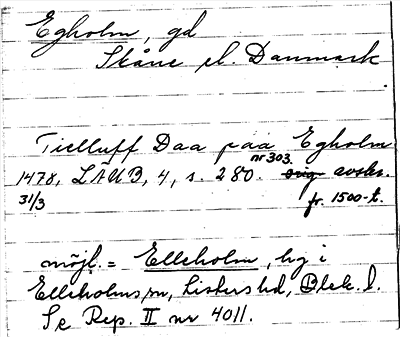 Egholm, gd
Skåne el. Danmark
Tielluff Daa paa Egholm
nr 303.
1478, LAUB, 4, s. 280. orig avskr.
31/3 fr. 1500-t.
möjl. = Elleholm, hg i
Elleholms sn, Listers hd, Blek. l.
Se Rep. II nr 4011.